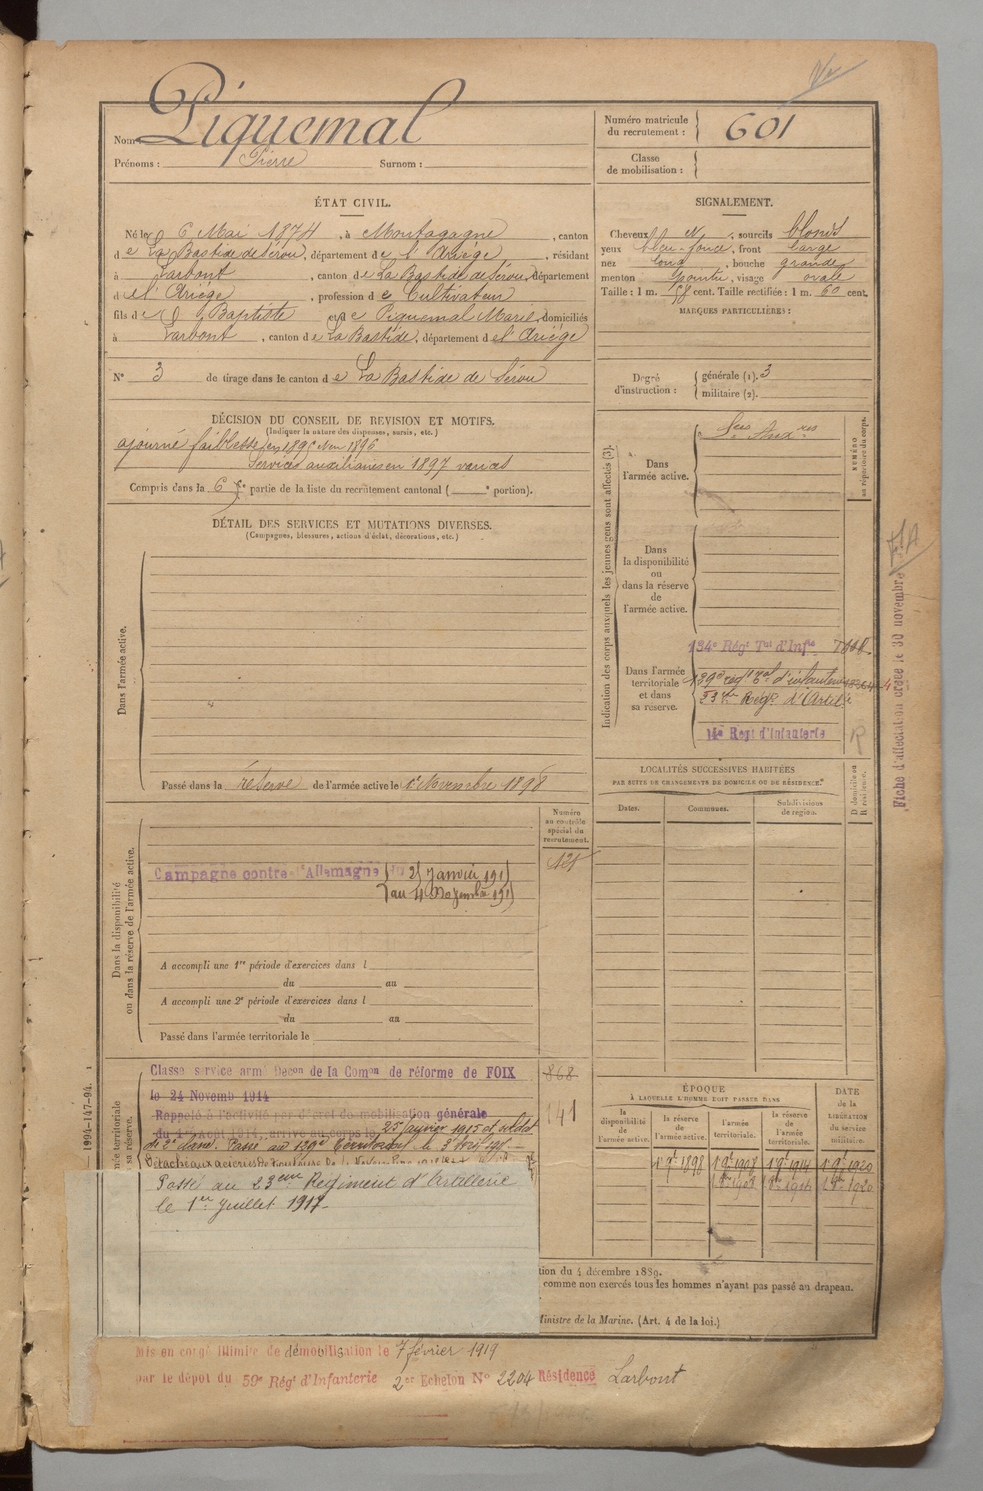 Nom Piquemal
Prénoms : Pierre Surnom :
Numéro matricule
du recrutement : 601
Classe
de mobilisation :
ÉTAT CIVIL.
Né le 6 Mai 1874, à Montagagne, canton
de La Bastide de Sérou, département de l'Ariége, résidant
à Larbont, canton de La Bastide de Sérou, département
de l'Ariége, profession de Cultivateur
fils de Baptiste et de Piquemal Marie, domiciliés
à Larbont, canton de La Bastide, département de l'Ariége
N° 3 de tirage dans le canton de La Bastide de Sérou
SIGNALEMENT.
Cheveux N, sourcils blonds
yeux bleu-foncé, front large
nez long, bouche grande
menton pointu, visage ovale
Taille : 1 m. 58 cent. Taille rectifiée : 1 m. 60 cent.
MARQUES PARTICULIÈRES :
Degré
d'instruction :
générale (1). 3
militaire (2).
DÉCISION DU CONSEIL DE REVISION ET MOTIFS.
(Indiquer la nature des dispenses, sursis, etc.)
ajourné faiblesse en 1895 1896
Services auxiliaires en 1897
Compris dans la 6e partie de la liste du recrutement cantonal ( e portion).
DÉTAIL DES SERVICES ET MUTATIONS DIVERSES.
(Campagnes, blessures, actions d'éclat, décorations, etc.)
Dans l'armée active.
Passé dans la réserve de l'armée active le 1er Novembre 1898
Indication des corps auxquels les jeunes gens sont affectés (3).
NUMÉRO
au répertoire du corps.
Dans
l'armée active.
Dans
la disponibilité
ou
dans la réserve
de
l'armée active.
Dans l'armée
territoriale
et dans
sa réserve.
134e Régt Tal d'Infie
129e régt Tal d'infanterie
23me Régt d'Artie
14e Regt d'Infanterie
R
Fiche d'affectation créée le 30 novembre
LOCALITÉS SUCCESSIVES HABITÉES
PAR SUITE DE CHANGEMENTS DE DOMICILE OU DE RÉSIDENCE.
Dates.
Communes.
Subdivisions
de région.
D domicile ou
R résidence.
Numéro
au contrôle
spécial du
recrutement.
Dans la disponibilité
ou dans la réserve de l'armée active.
Campagne contre l'Allemagne du 25 Janvier 191
au 4 Novembre 191
A accompli une 1re période d'exercices dans l
du au
A accompli une 2e période d'exercices dans l
du au
Passé dans l'armée territoriale le
Classé service armé Décon de la Comon de réforme de FOIX
le 24 Novemb 1914
868
Rappelé à l'activité par décret de mobilisation générale
141
du 1er Août 1914, arrivé au corps le 25 janvier 1915 et soldat
de 2e classe. Passé au 129e Territorial le 3
Passé au 23eme Régiment d'Artillerie
le 1er Juillet 1917
ÉPOQUE
À LAQUELLE L'HOMME DOIT PASSER DANS
la
disponibilité
de
l'armée active.
la réserve
de
l'armée active.
l'armée
territoriale.
la réserve
de
l'armée
territoriale.
DATE
de la
LIBÉRATION
du service
militaire.
1 9bre 1898 1 9bre 1908 1 9bre 1914 1 9bre 1920
1994-147-94.
tion du 4 décembre 1889.
comme non exercés tous les hommes n'ayant pas passé au drapeau.
Ministre de la Marine. (Art. 4 de la loi.)
Mis en congé illimité de démobilisation le 7 février 1919
par le dépôt du 59e Régt d'Infanterie 2er Echelon N° 2204 Résidence Larbont